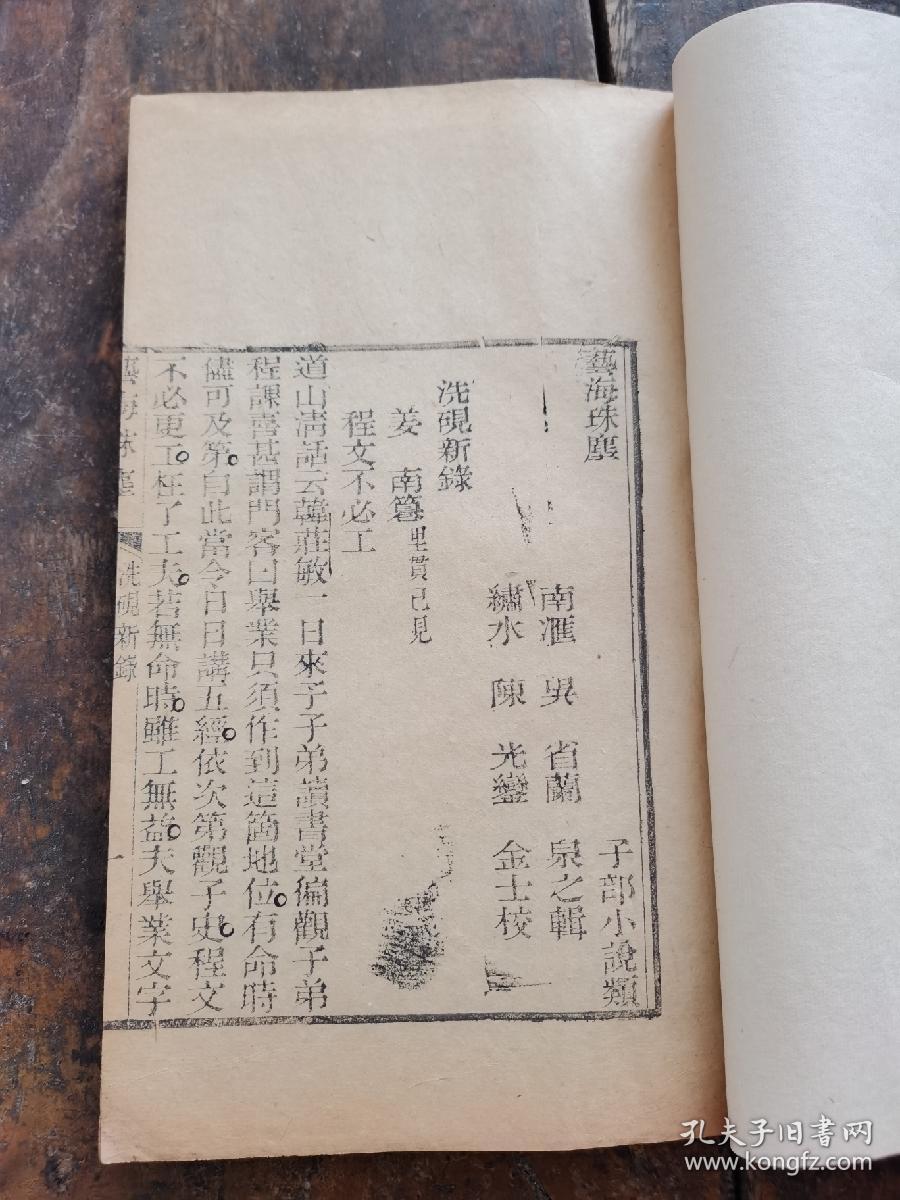 藝海珠塵 子部小說類
南滙 吳 省蘭 泉之輯
繡水 陳 光 金士校
洗硯新錄
姜 南 里貫已見
程文不必工
道山清話云韓莊敏一日來予子弟讀書堂徧觀子弟
程課喜甚謂門客曰舉業只須作到這箇地位有命時
儘可及第自此當令日日講五經依次第觀子史程文
不必更工枉了工夫若無命時雖工無益夫舉業文字
藝海珠塵 洗硯新錄 一
孔夫子旧书网
www.kongfz.com